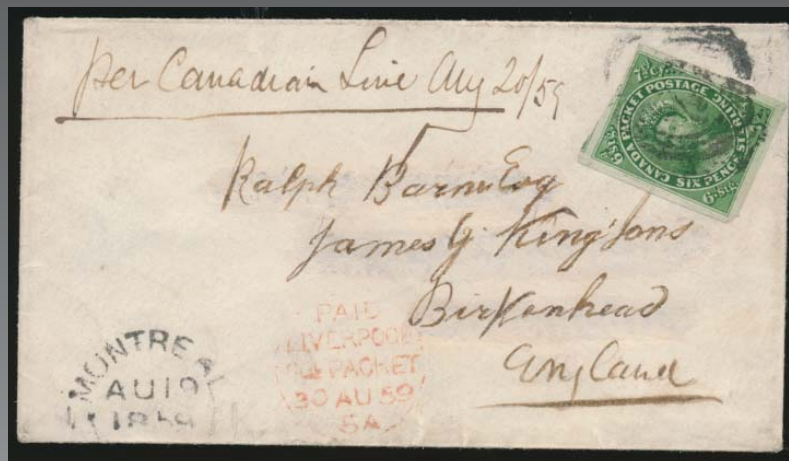 per Canadian Line Aug 20/59
7½ cy.
CANADA PACKET POSTAGE
SIX PENCE STERLING
6d. stg.
Ralph Barnu Esq
James G. King Sons
Birkenhead
England
PAID
LIVERPOOL
PACKET
30 AU 59
5A
MONTREAL
AU 19
1859